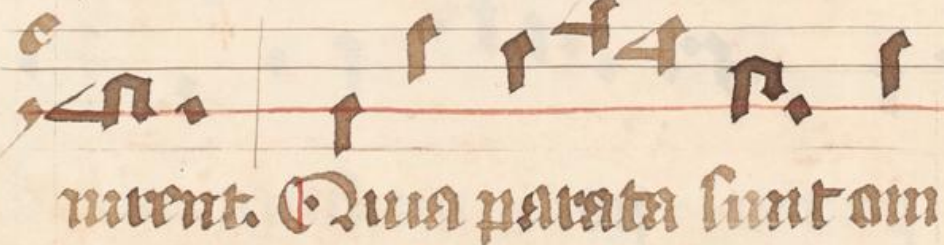 nirent. Quia parata sunt om